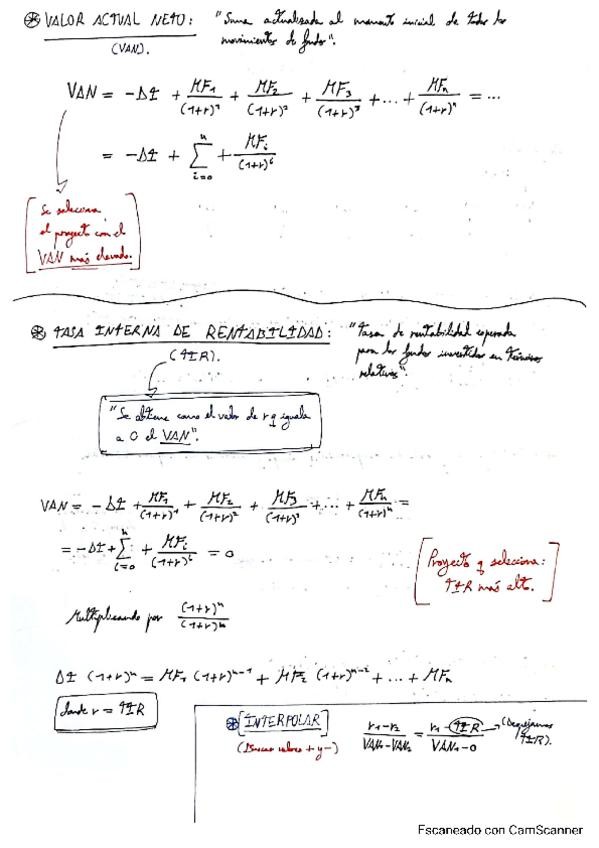 ⊛ VALOR ACTUAL NETO: "Suma actualizada al momento inicial de todos los
(VAN). movimientos de fondos".
VAN = -ΔI + MF₁/(1+r)¹ + MF₂/(1+r)² + MF₃/(1+r)³ + ... + MFₙ/(1+r)ⁿ = ...
= -ΔI + Σ_{i=0}^{n} + MFᵢ/(1+r)ⁱ
[Se selecciona
el proyecto con el
VAN más elevado.]
⊛ TASA INTERNA DE RENTABILIDAD: "Tasa de rentabilidad esperada
(TIR). para los fondos invertidos en términos
relativos".
"Se obtiene como el valor de r q iguala
a 0 el VAN".
VAN = -ΔI + MF₁/(1+r)¹ + MF₂/(1+r)² + MF₃/(1+r)³ + ... + MFₙ/(1+r)ⁿ =
= -ΔI + Σ_{i=0}^{n} + MFᵢ/(1+r)ⁱ = 0
[Proyecto q selecciona:
TIR más alto.]
Multiplicando por (1+r)ⁿ/(1+r)ⁿ
ΔI (1+r)ⁿ = MF₁ (1+r)ⁿ⁻¹ + MF₂ (1+r)ⁿ⁻² + ... + MFₙ
donde r = TIR
⊛ [INTERPOLAR] (r₁-r₂)/(VAN₁-VAN₂) = (r₁-TIR)/(VAN₁-0) → (Despejamos
(Buscar valores + y -) TIR).
Escaneado con CamScanner